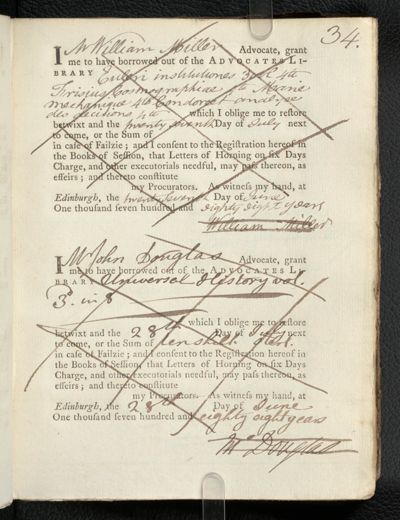 34.
I Mr William Miller Advocate, grant
me to have borrowed out of the ADVOCATES LI-
BRARY Euleri institutiones 3 vol 4to
Frisius Cosmographiae 4to Marie
mechanique 4to Condorcet analyse
des sections 4to which I oblige me to restore
betwixt and the twenty seventh Day of July next
to come, or the Sum of
in case of Failzie; and I consent to the Registration hereof in
the Books of Session, that Letters of Horning on six Days
Charge, and other executorials needful, may pass thereon, as
effeirs; and thereto constitute
my Procurators. As witness my hand, at
Edinburgh, the twenty seventh Day of June
One thousand seven hundred and eighty eight years
William Miller
I Mr John Douglas Advocate, grant
me to have borrowed out of the ADVOCATES LI-
BRARY Universal History vol.
3d. in 8
which I oblige me to restore
betwixt and the 28th Day of July next
to come, or the Sum of ten shill. ster.
in case of Failzie; and I consent to the Registration hereof in
the Books of Session, that Letters of Horning on six Days
Charge, and other executorials needful, may pass thereon, as
effeirs; and thereto constitute
my Procurators. As witness my hand, at
Edinburgh, the 28th Day of June
One thousand seven hundred and eighty eight years
Douglas